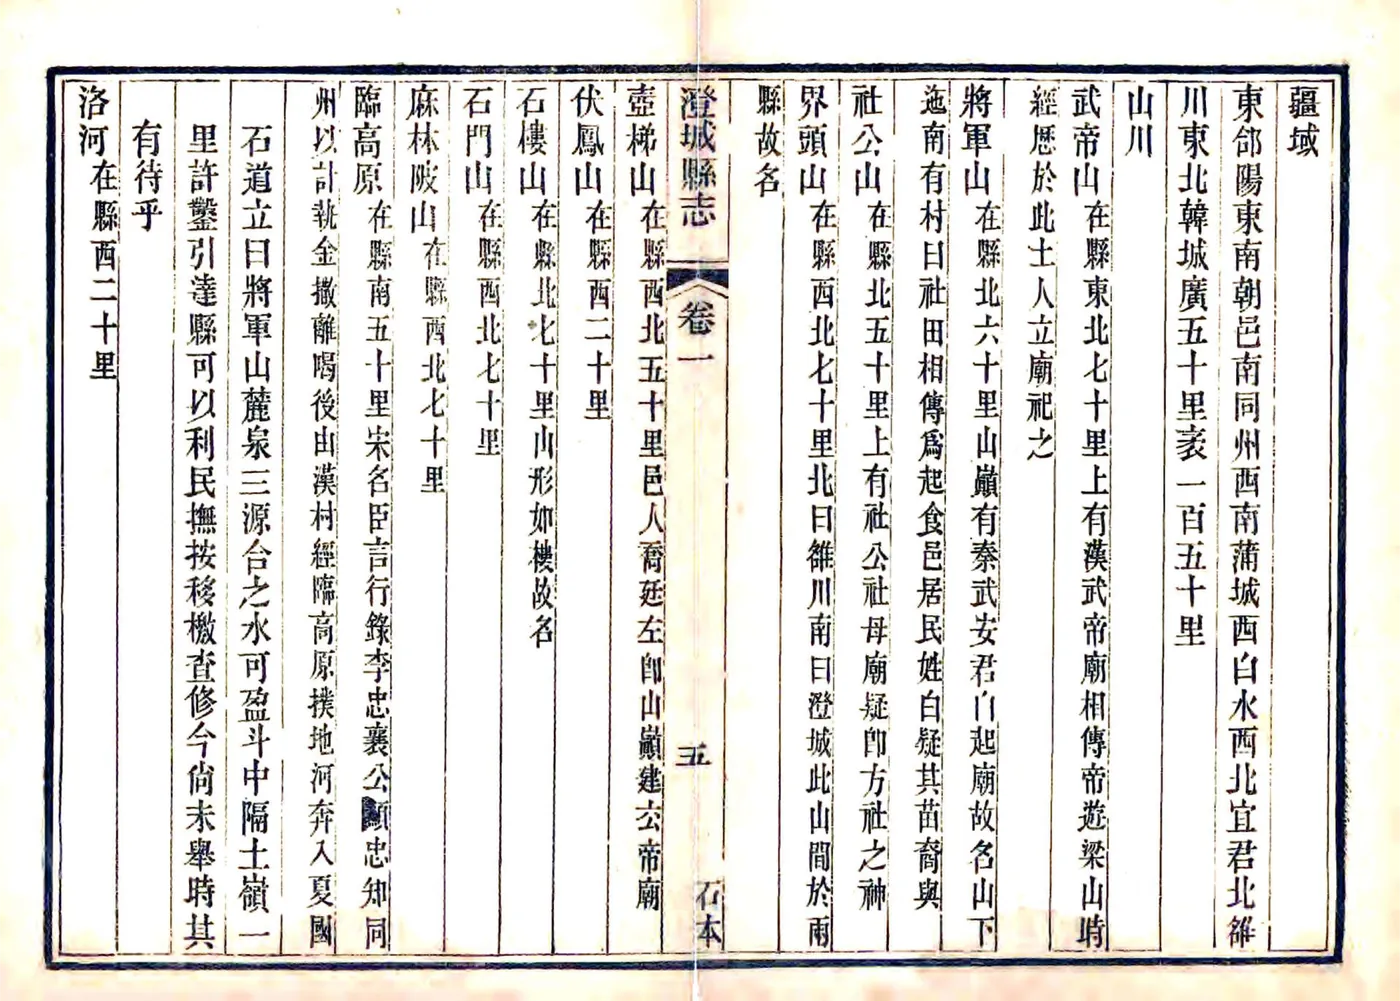 疆域
東郃陽東南朝邑南同州西南蒲城西白水西北宜君北雒
川東北韓城廣五十里袤一百五十里
山川
武帝山在縣東北七十里上有漢武帝廟相傳帝遊梁山時
經歴於此土人立廟祀之
將軍山在縣北六十里山巔有秦武安君白起廟故名山下
迤南有村曰社田相傳爲起食邑居民姓白疑其苗裔與
社公山在縣北五十里上有社公社母廟疑卽方社之神
界頭山在縣西北七十里北曰雒川南曰澄城此山間於兩
縣故名
澄城縣志
卷一
五
石本
壺梯山在縣西北五十里邑人喬廷左卽山巔建玄帝廟
伏鳳山在縣西二十里
石樓山在縣北七十里山形如樓故名
石門山在縣西北七十里
麻林陂山在縣西北七十里
臨高原在縣南五十里宋名臣言行錄李忠襄公顯忠知同
州以計執金撒離喝後由漢村經臨高原撲地河奔入夏國
石道立曰將軍山麓泉三源合之水可盈斗中隔土嶺一
里許鑿引達縣可以利民撫按移檄查修今尚未舉時其
有待乎
洛河在縣西二十里